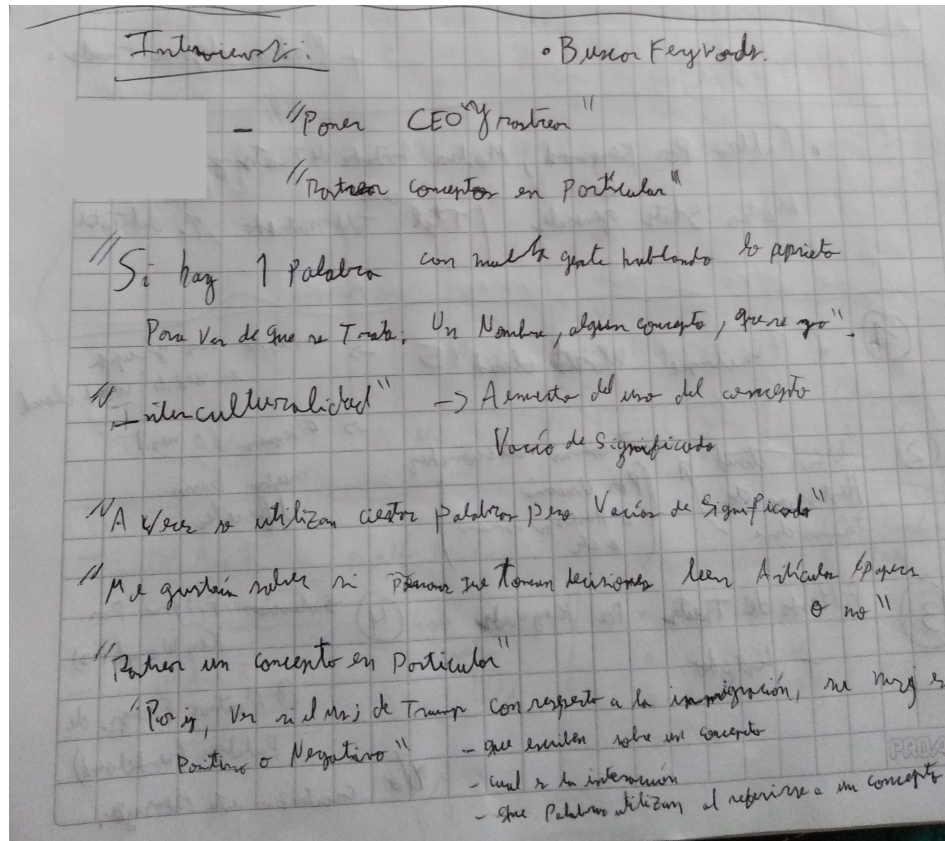 Interviews:
• Buscar Keywords.
- "Poner CEO y rastrear"
"Rastrear conceptos en Particular"
"Si hay 1 Palabra con mucha gente hablando lo aprieto
Para Ver de que se Trata. Un Nombre, algun concepto, que se yo".
"Interculturalidad" -> Aumento del uso del concepto
Vacío de Significado
"A Veces se utilizan ciertas palabras pero Vacías de Significado"
"Me gustaría saber si Personas que toman decisiones leen Artículos/papers
o no"
"Rastrear un concepto en Particular"
"Por ej, Ver si el msj de Trump con respecto a la inmigración, su msj es
Positivo o Negativo" - que escriben sobre un concepto
- cual es la interacción
- que Palabras utilizan al referirse a un concepto